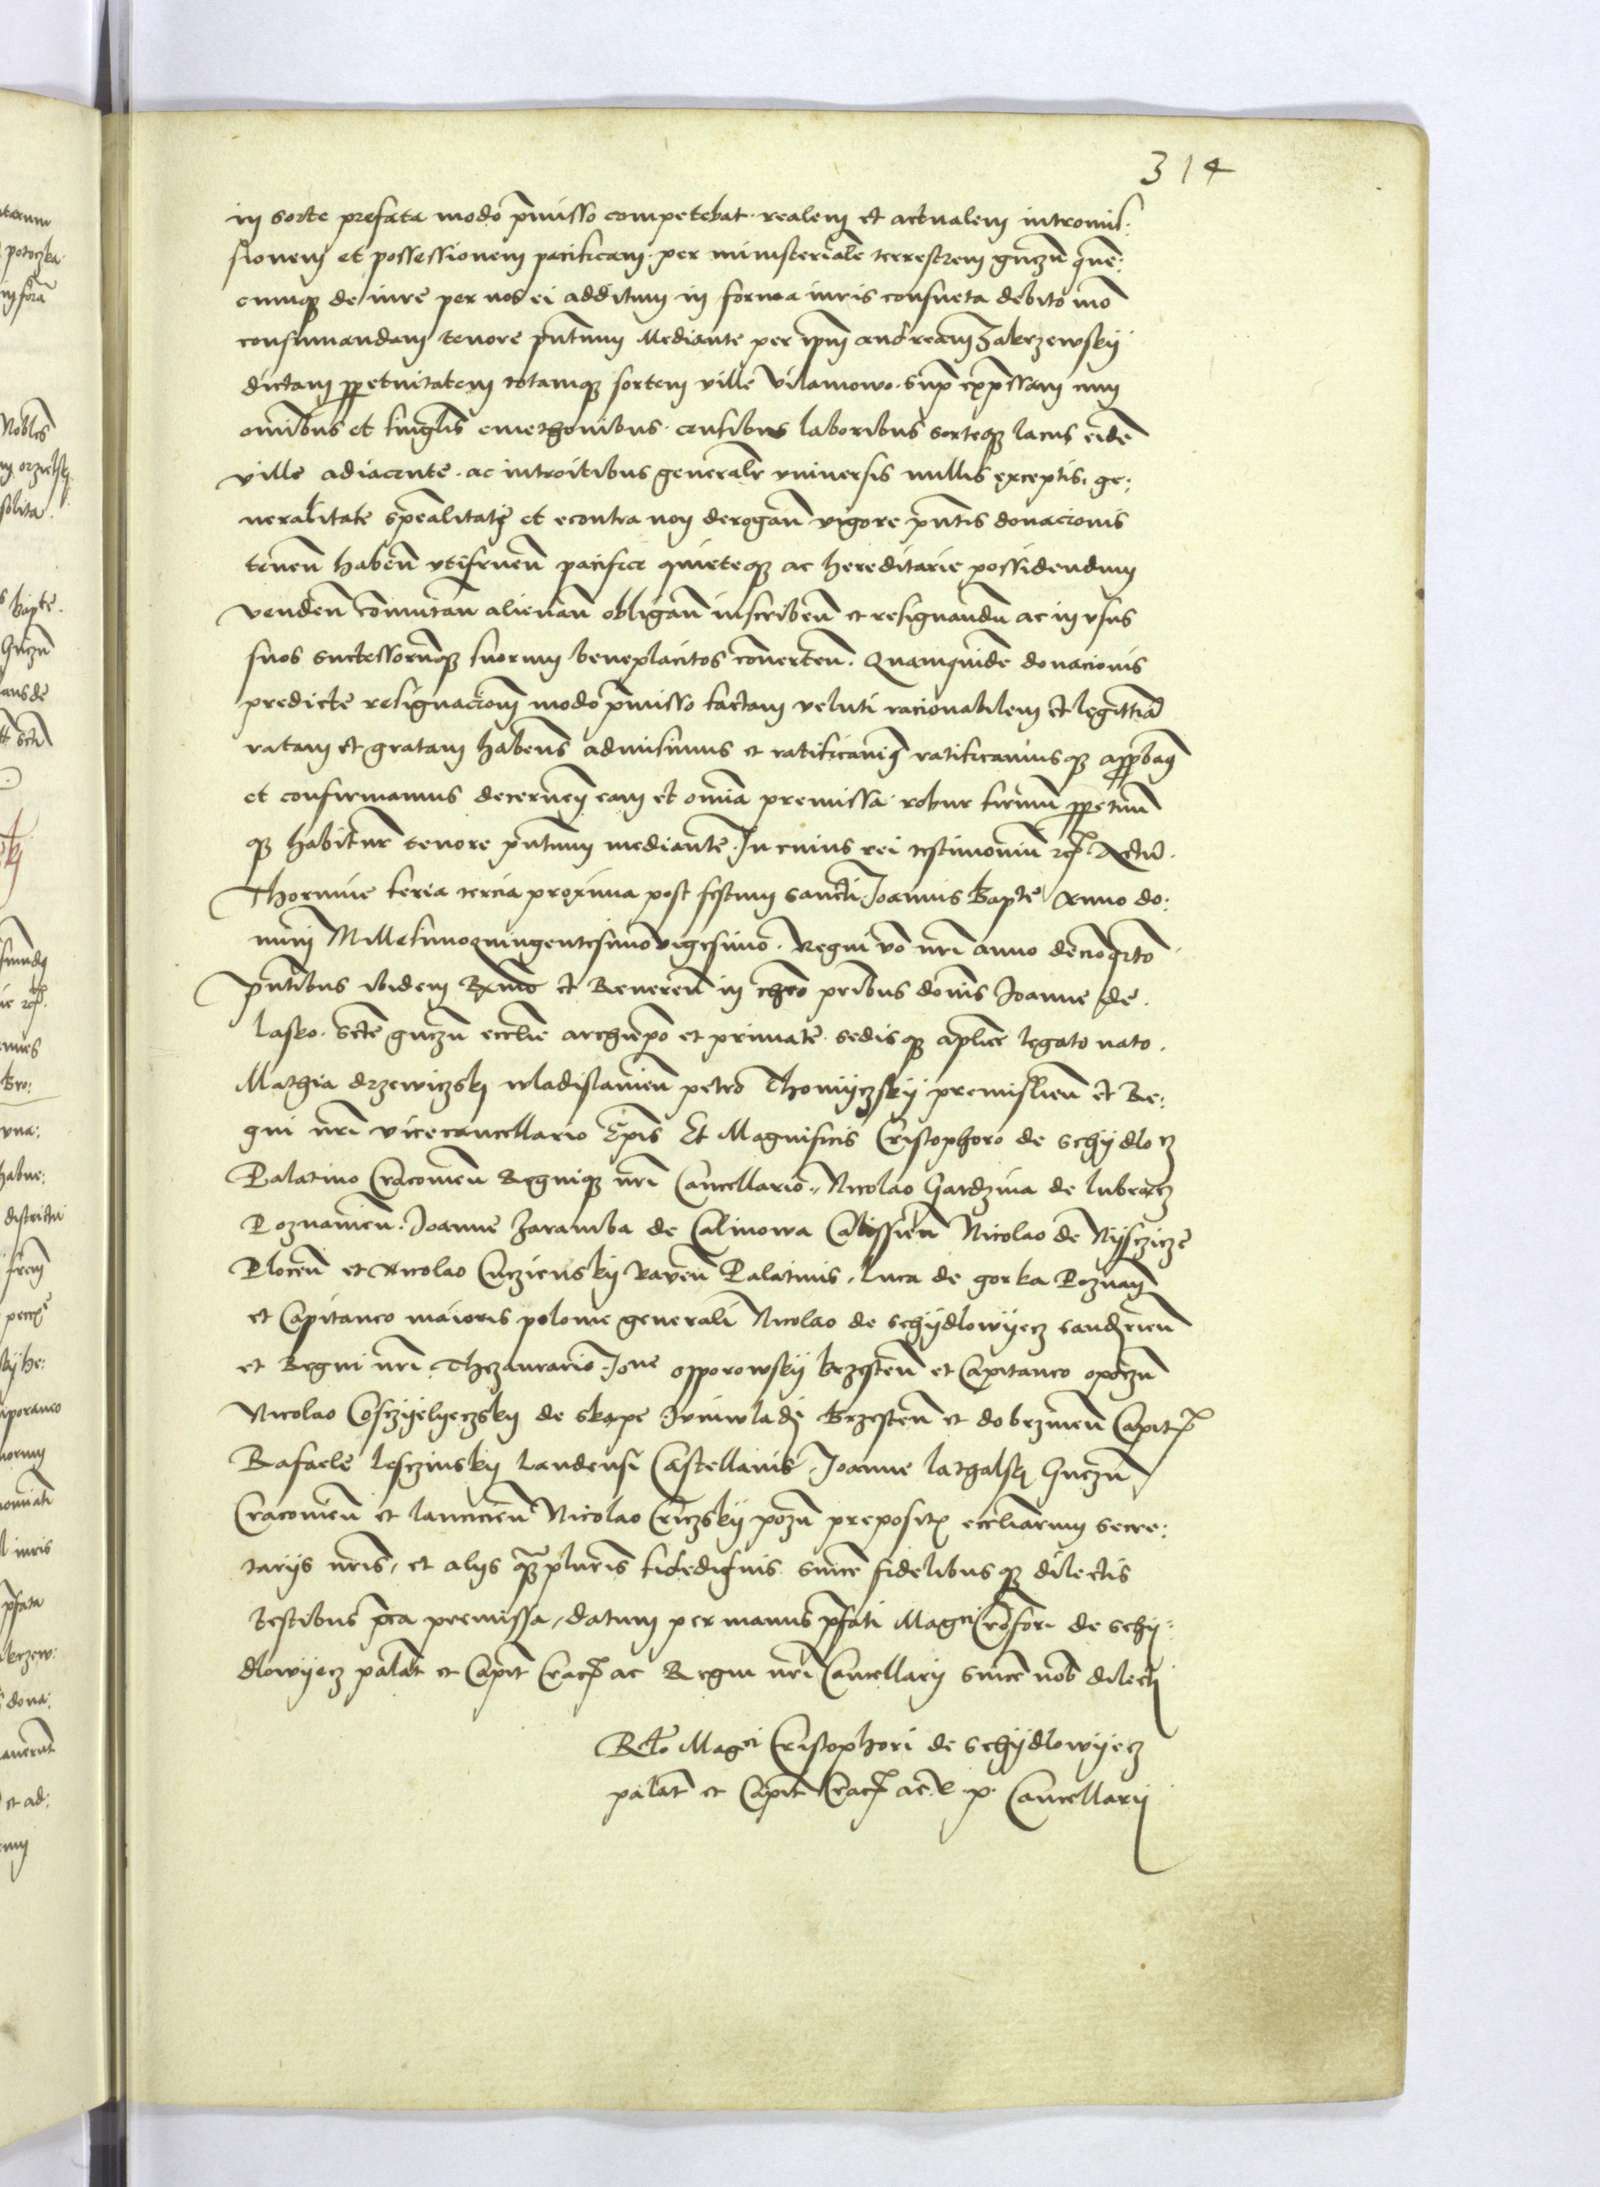 314
in sorte prefata modo p̄misso competebat realem et actualem intromis:
sionem et possessionem pacificam per ministerialē terrestrem gnezn̄ quē:
cumq̨ de iure per nos ei additum in forma iuris consueta debito mō
consumandam tenore pn̄tium Mediante per ip̄m andream Zakrzewskij
dictam ꝑpetuitatem totamq̨ sortem ville Vilamowo sup̄ exp̄ssam cum
om̄ibus et singl̄is cmethonibus censibus laboribus sorteq̨ lacus eidē
ville adiacente ac introitibus generalr̄ vniuersis nullis exceptis ge:
neralitate sp̄ealitatē et econtra non derogan̄ vigore pn̄tis donacionis
tenen̄ haben̄ vtifruen̄ pacifice quieteq̨ ac hereditarie possidendum
venden̄ cōmutan̄ alienan̄ obligan̄ inscriben̄ et resignandū ac in vsus
suos successorumq̨ suorum beneplacitos cōuerten̄. Quamquidē donacionis
predicte resignacionē modo p̄misso factam veluti racionabilem et legittīā
ratam et gratam habens admisimus et ratificauim̄ ratificamusq̨ aꝓbam̄
et confirmamus decernen̄ eam et om̄ia premissa robur firmū ꝑpetuū
q̨ habitur̄ tenore pn̄tium mediante. In cuius rei testimoniū rc̄ Actū
Thorunie feria tercia proxima post festum sancti Joannis Bapte Anno do:
mini Millesimoquingentesimovigesimo. Regni vō nr̄i anno decīoqrto
Pn̄tibus ibidem Rx̄mo et Reueren̄ in chr̄o pr̄ibus dom̄is Joanne de
lasko. Scte gnezn̄ eccl̄ie archiep̄o et primate sedisq̨ apl̄ice legato nato.
Mathia drzewiczskj wladislauien̄ petro Thomijczskij premislien̄ et Re:
gni nr̄i vicecancellario Ep̄is Et Magnificis Cristophoro de schijdlo cz
Palatino Cracouien̄ Regniq̨ nr̄i Cancellario. Nicolao Gardzina de lubracz
Poznanien̄. Joanne Zaramba de Calinowa Calissien̄ Nicolao de Nijsczicze
Plocen̄ et Nicolao Cuczienskij Raven̄ Palatinis, Luca de gorka Poznan̄
et Capitaneo maioris polonie generali Nicolao de schijdlowijecz sandzīen̄
et Regni nr̄i Thezaurario. Jōne osporowskij brzesten̄ et Capitaneo opoczn̄
Nicolao Cosczijelyeczskij de skape Juniwladj Brzesten̄ et dobrzinen̄ Capit̄
Rafaele lesczinskij Landensi Castellanis. Joanne latgalskj Gnezn̄
Cracouien̄ et lancicien̄ Nicolao Criczskij pozn̄ preposit̄ eccl̄iarum secre:
tarijs nr̄is, et alijs q̄ꝫpluris̄ fidedignis since fidelibusq̨ dilectis
Testibus p̄ca premissa, datum per manus p̄fati Magci Cr̄ofori de schij:
dlowijecz palat̄ et Capit̄ Crac̄ ac Regni nr̄i Cancellarij since nob̄ dilecti
Relo Magci Cristophori de schijdlowijecz
palat̄ et Capit̄ Crac̄ ac R p. Cancellarij